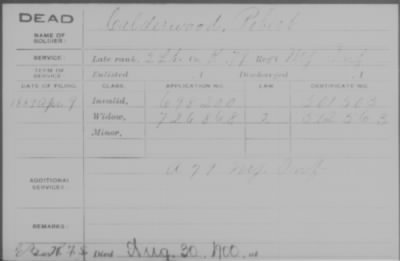 DEAD
NAME OF SOLDIER:
Calderwood, Robert
SERVICE:
Late rank, Co. K, 79 Reg't N.Y. Inf.
TERM OF SERVICE:
Enlisted , 1 Discharged , 1
DATE OF FILING. CLASS. APPLICATION NO. LAW. CERTIFICATE NO.
Apr 9 Invalid, 698200
Widow, 726868 2 512563
Minor,
ADDITIONAL SERVICES:
A 79 N.Y. Inf.
REMARKS:
Died Aug. 30, 1900, at